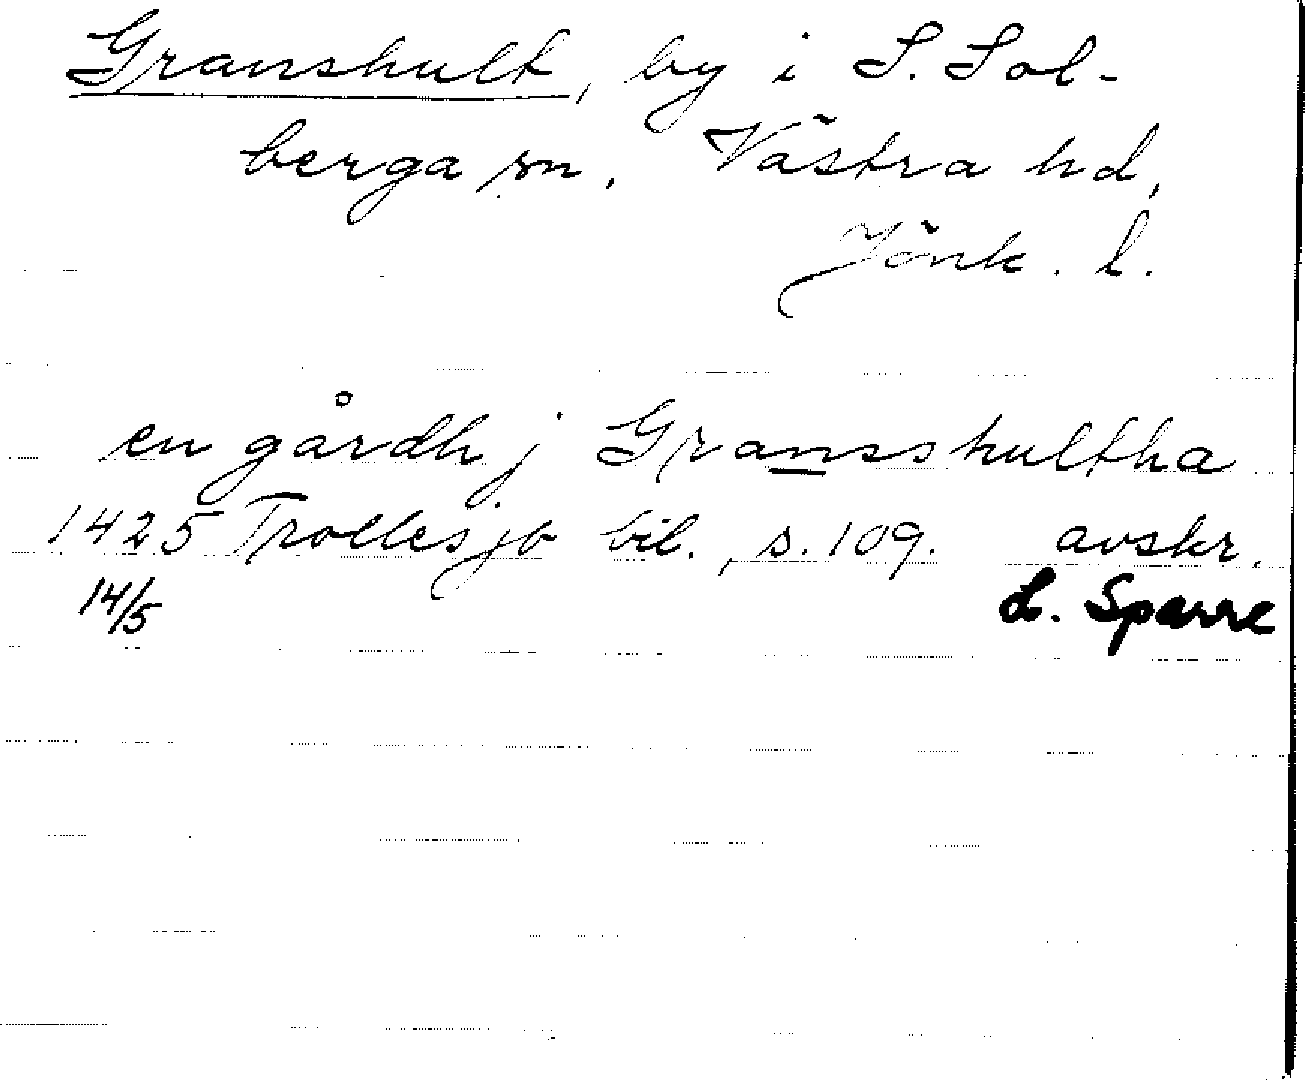 Granshult, by i S. Sol-
berga sn. Västra hd,
Jönk. l.
en gårdh j Gransshultha
1425 Trolles jb bil., s. 109. avskr.
14/5 L. Sparre